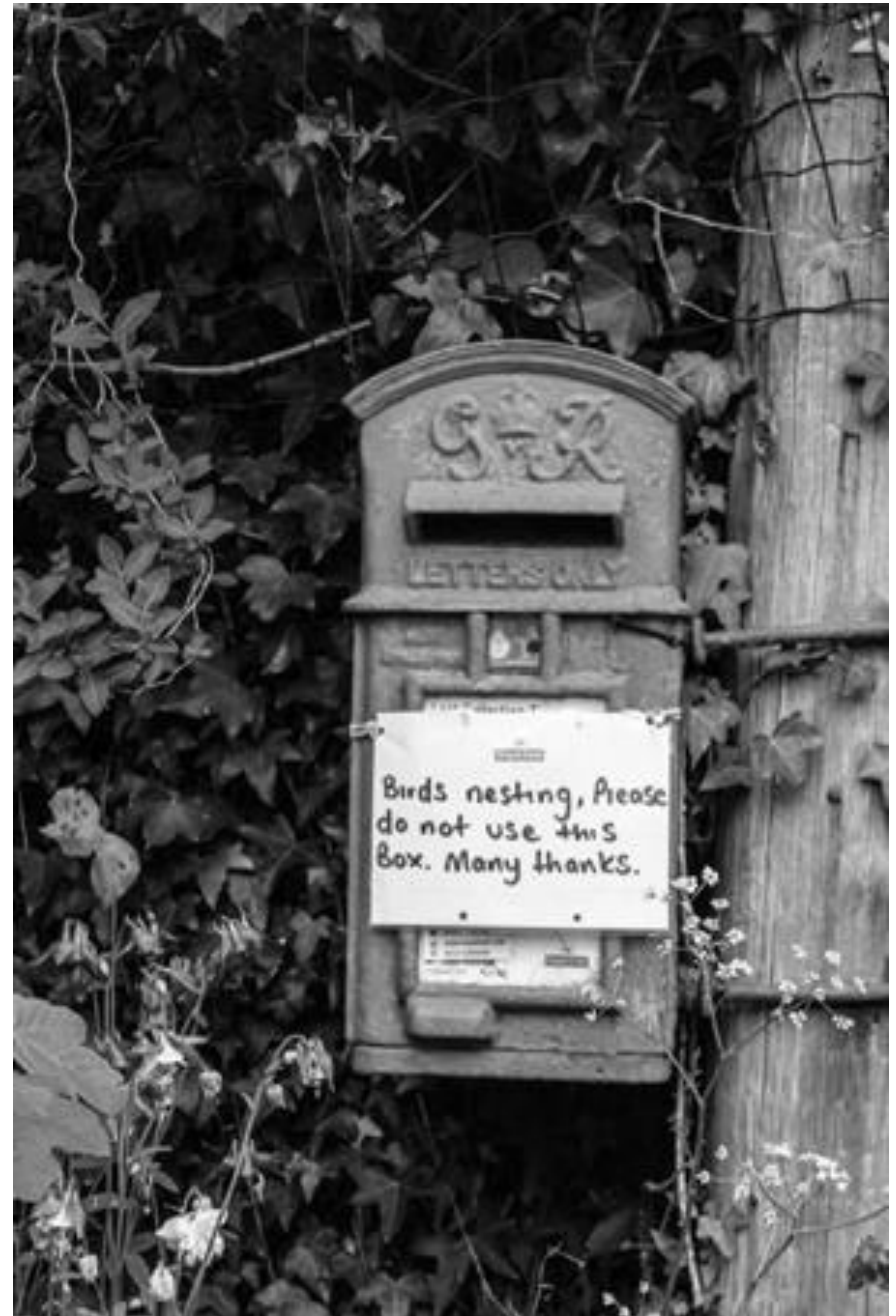 G VI R
LETTERS ONLY
Birds nesting, Please
do not use this
Box. Many thanks.